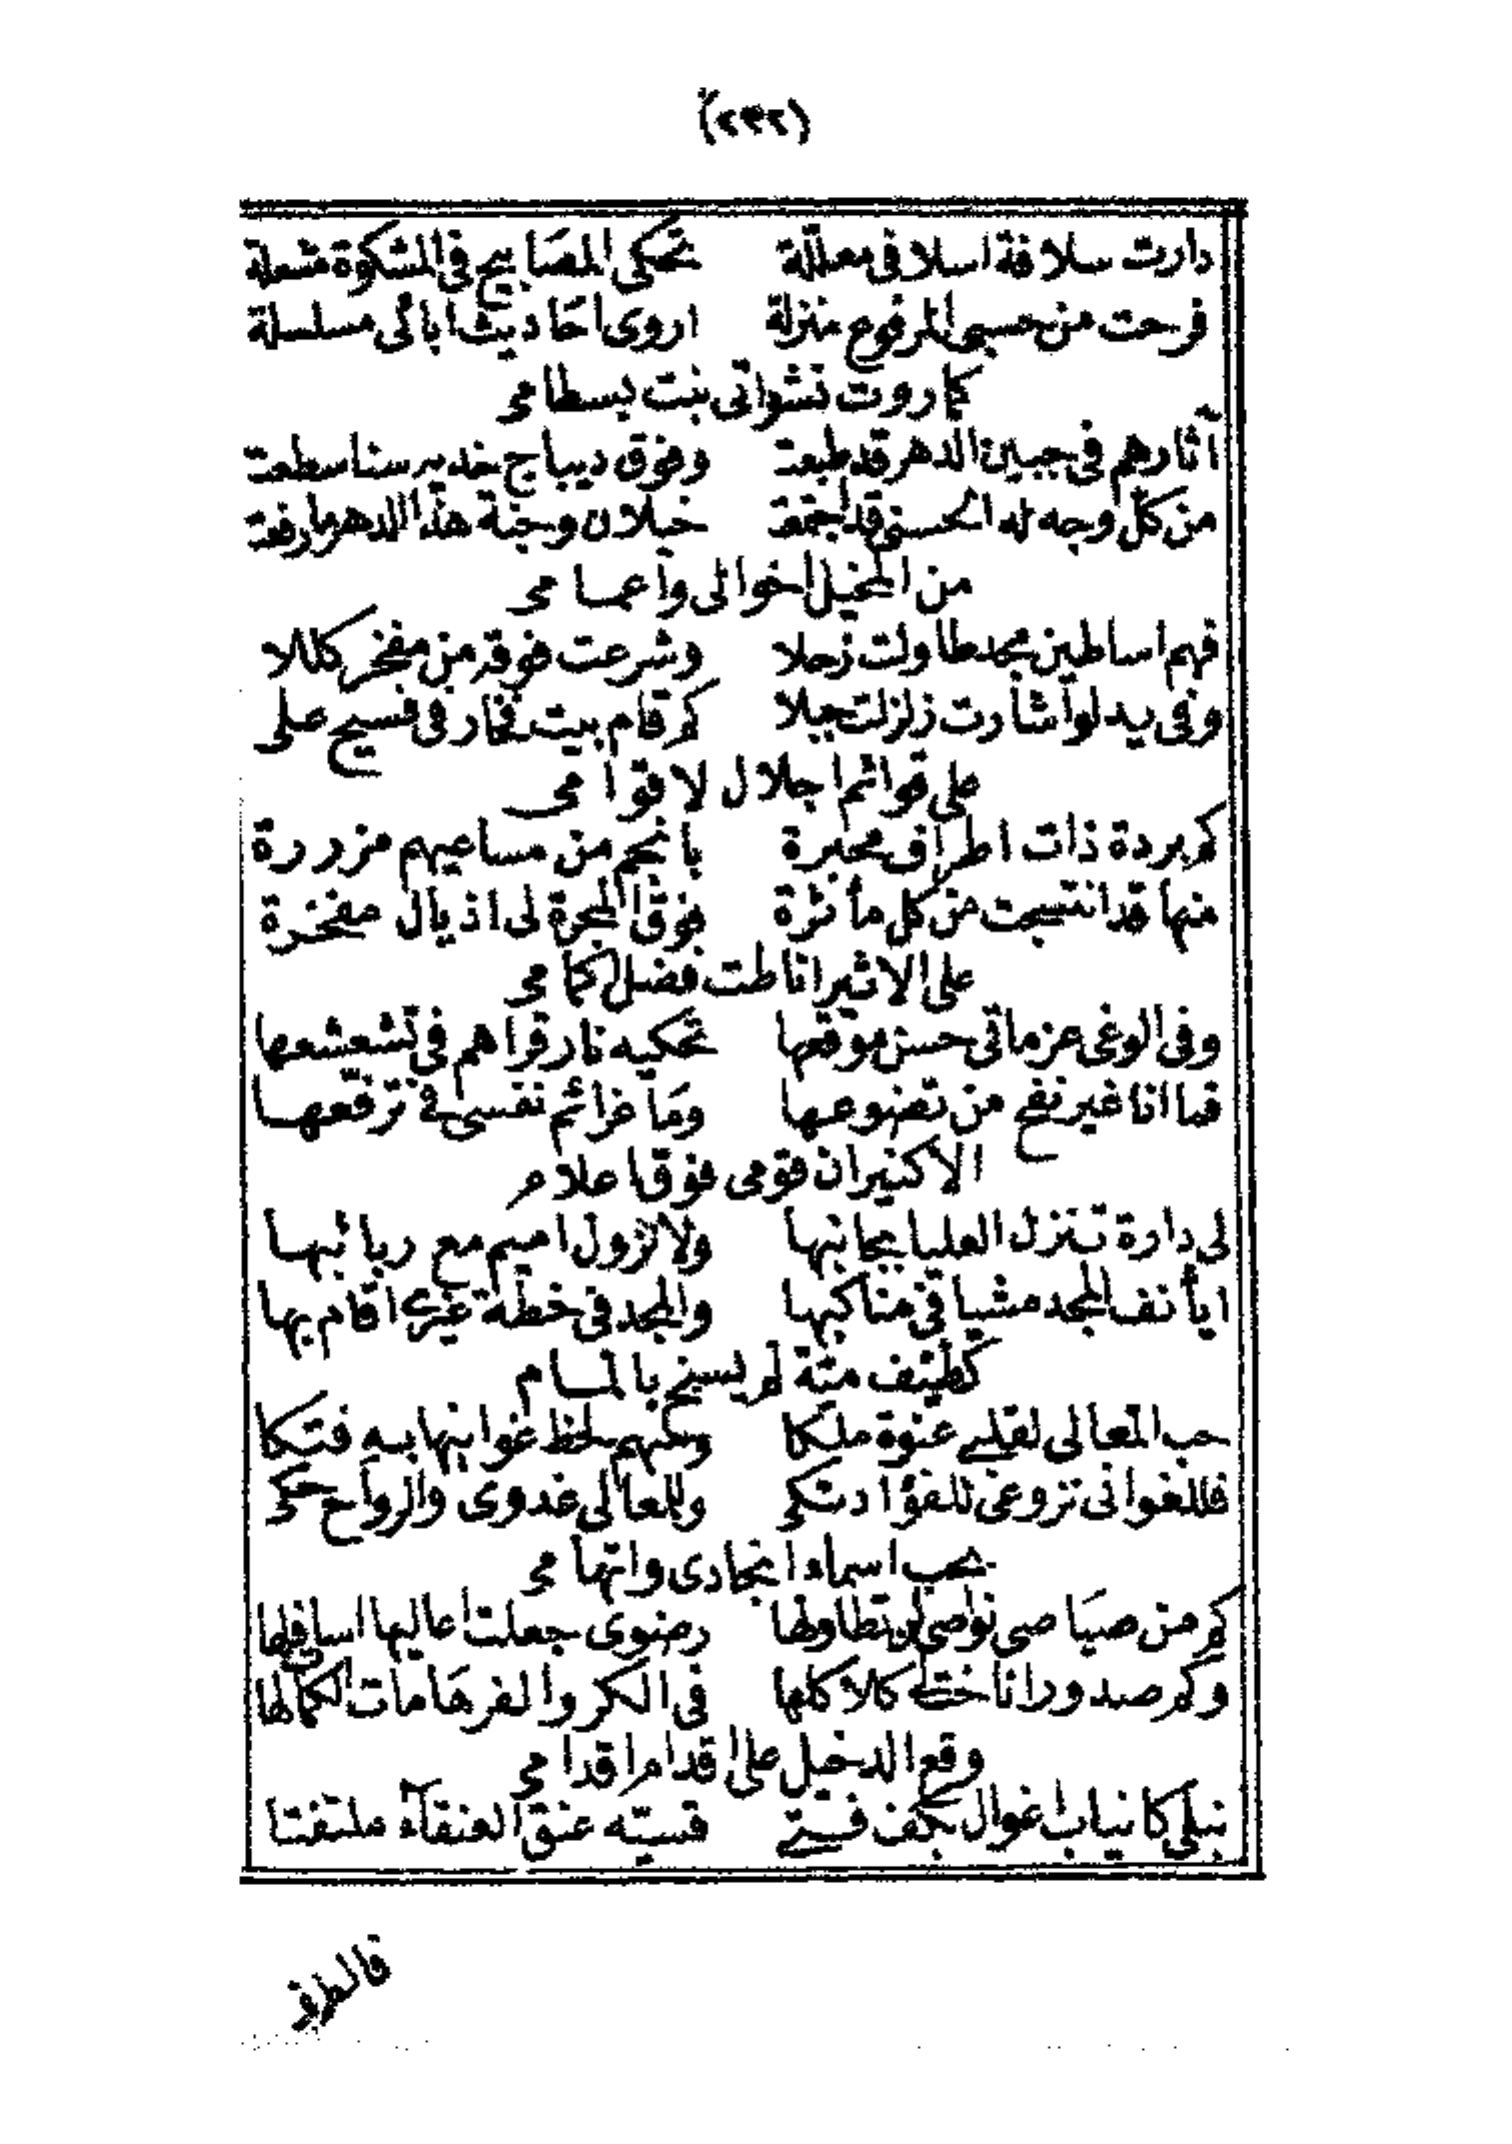 (٢٣٢)
دارت سلافة اسلافى معللة تحكى المصابيح فى المشكوة مشعلة
فرحت من حسبى المرفوع منزلة اروى احاديث ابائى مسلسلة
كما روت نشواتى بنت بسطامى
آثارهم فى جبين الدهر قد طبعت وفوق ديباج خديه سنا سطعت
من كل وجه له الحسنى قد اجتمعت خيلان وجنة هذا الدهر ما رفعت
من المخيل اخوالى وأعمامى
فهم اساطين مجد طاولت زحلا وشرعت فوقه من مفخر كللا
وفى يد لو أشارت زلزلت جبلا كم قام بيت فخار فى فسيح على
على قوائم اجلال لا قوامى
كم بردة ذات اطراف محبرة بانجم من مساعيهم مزررة
منها قد انتسجت من كل مأثرة فوق المجرة لى اذيال مفخرة
على الاثير اناطت فضل اكمامى
وفى الوغى عزماتى حسن موقعها تحكيه نار قراهم فى تشعشعها
فما انا غير نفح من تضوعها وما عزائم نفسى فى ترفعها
الا كنيران قومى فوق اعلام
لى دارة تنزل العليا بجانبها ولا نزول اميم مع ربائبها
ايأنف المجد مشيا فى مناكبها والمجد فى خطة غيرى اقام بها
كطيف مية لم يسنح بالمام
حب المعالى لقلبى عنوة ملكا وسهم لحظ غوانيها به فتكا
فللغوانى نزوعى للفؤاد تكى وللمعالى غدوى والرواح حكى
بحب اسماء انجادى واتهامى
كم من صياصى نواصى لن تطاولها رضوى جعلت اعاليها اسافلها
وكم صدور اناخت لى كلاكلها فى الكر والفر هامات الكمى لها
وقع الدخيل على اقدام اقدامى
نبلى كانياب اغوال بكف فتى قسيّه عنق العنقآء ملتفتا
فالطرف